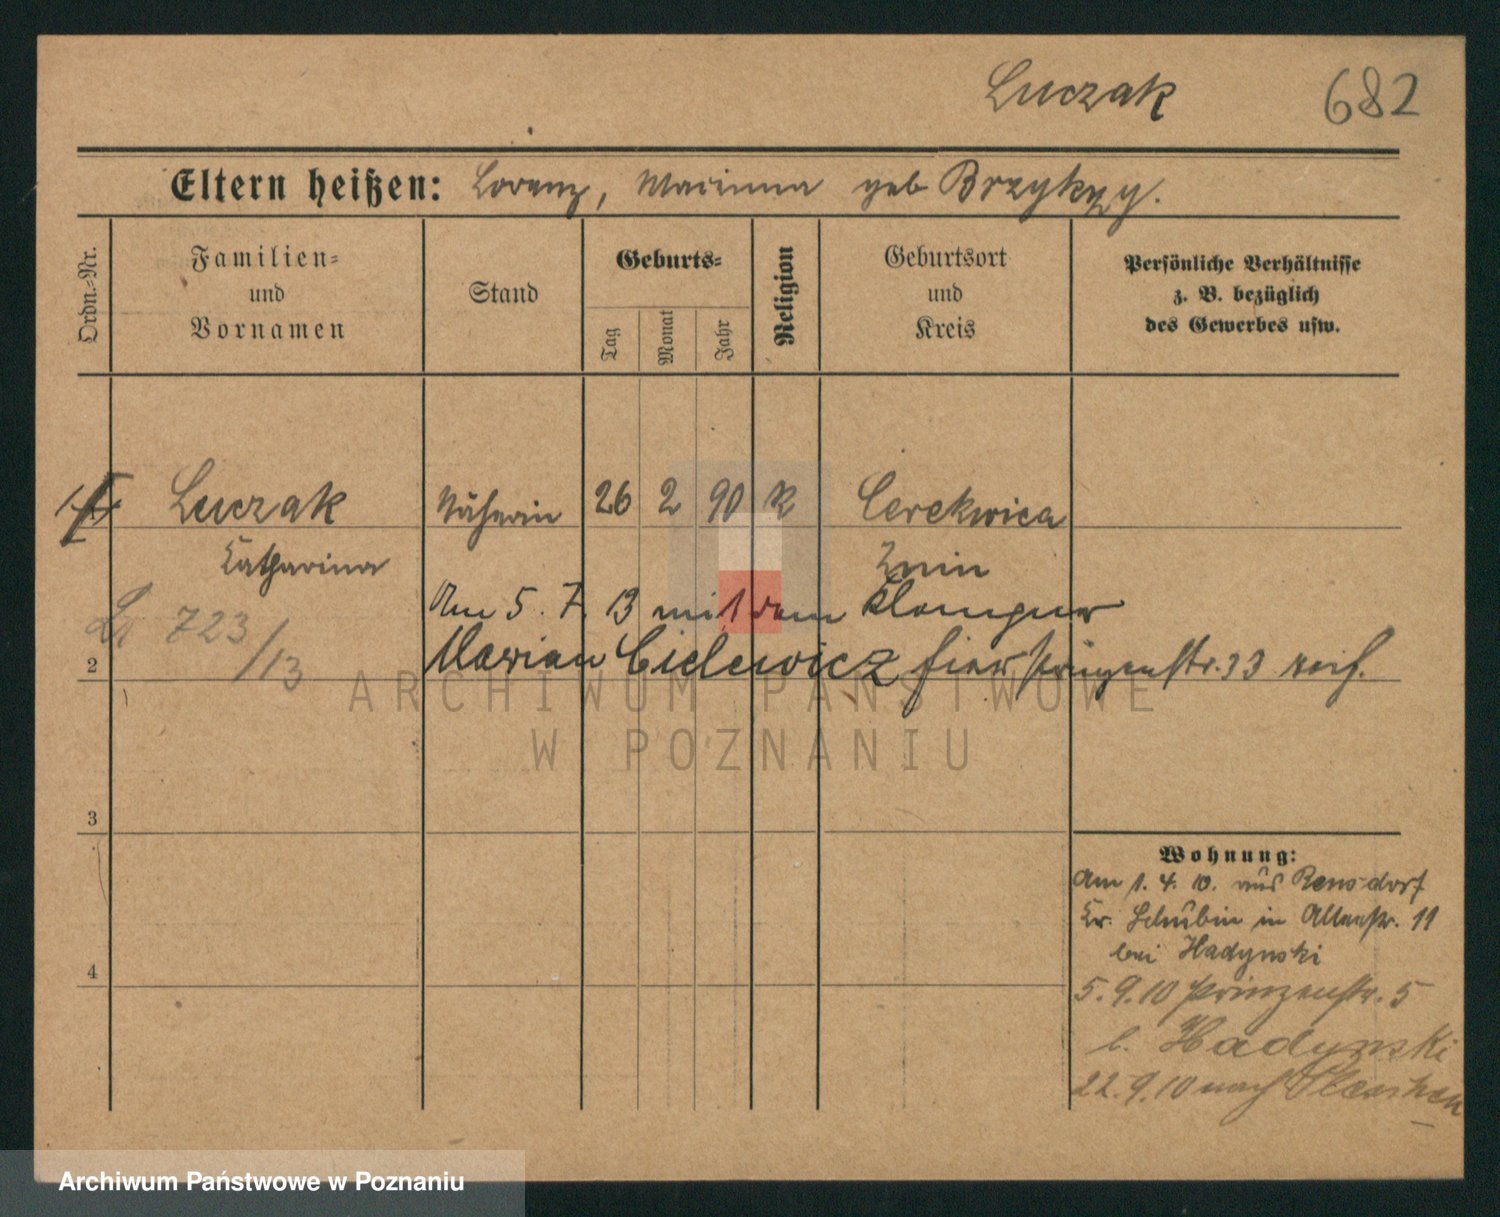 Luczak 682
Eltern heißen: Lorenz, Marianna geb Brzykcy.
Ordn.-Nr.
Familien-
und
Vornamen
Stand
Geburts-
Tag
Monat
Jahr
Religion
Geburtsort
und
Kreis
Persönliche Verhältnisse
z. B. bezüglich
des Gewerbes usw.
Luczak Näherin 26 2 90 K Cerekwica
Katharina Znin
Am 5. 7. 13 mit dem Klempner
723/13
2 Marian Cielewicz hier Prinzenstr. 33 verh.
ARCHIWUM PAŃSTWOWE
W POZNANIU
3
Wohnung:
Am 1. 4. 10. aus Rensdorf
Kr. Schubin in Allerstr. 11
bei Hadynski
4
5. 9. 10 Prinzenstr. 5
b. Hadynski
22. 9. 10 nach Pleschen
Archiwum Państwowe w Poznaniu